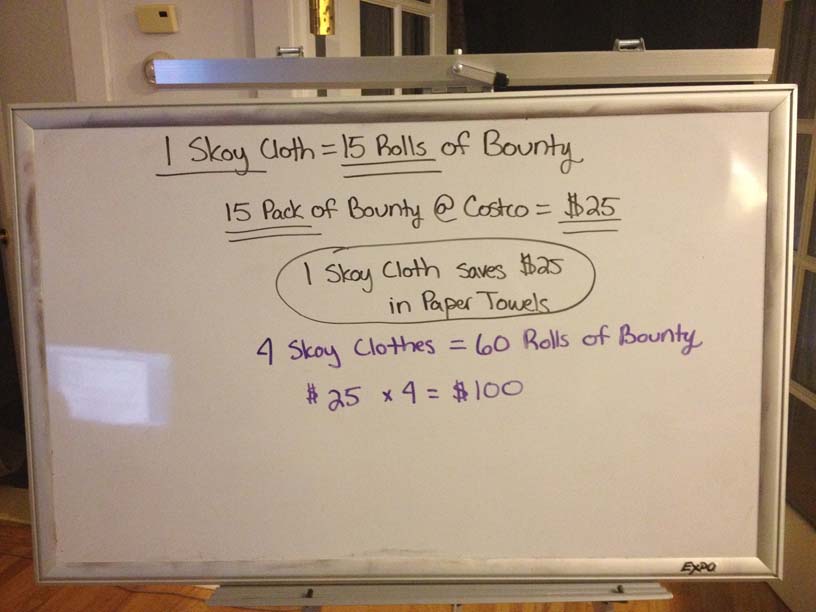 1 Skoy Cloth = 15 Rolls of Bounty
15 Pack of Bounty @ Costco = $25
1 Skoy Cloth saves $25
in Paper Towels
4 Skoy Clothes = 60 Rolls of Bounty
$25 x 4 = $100
EXPO